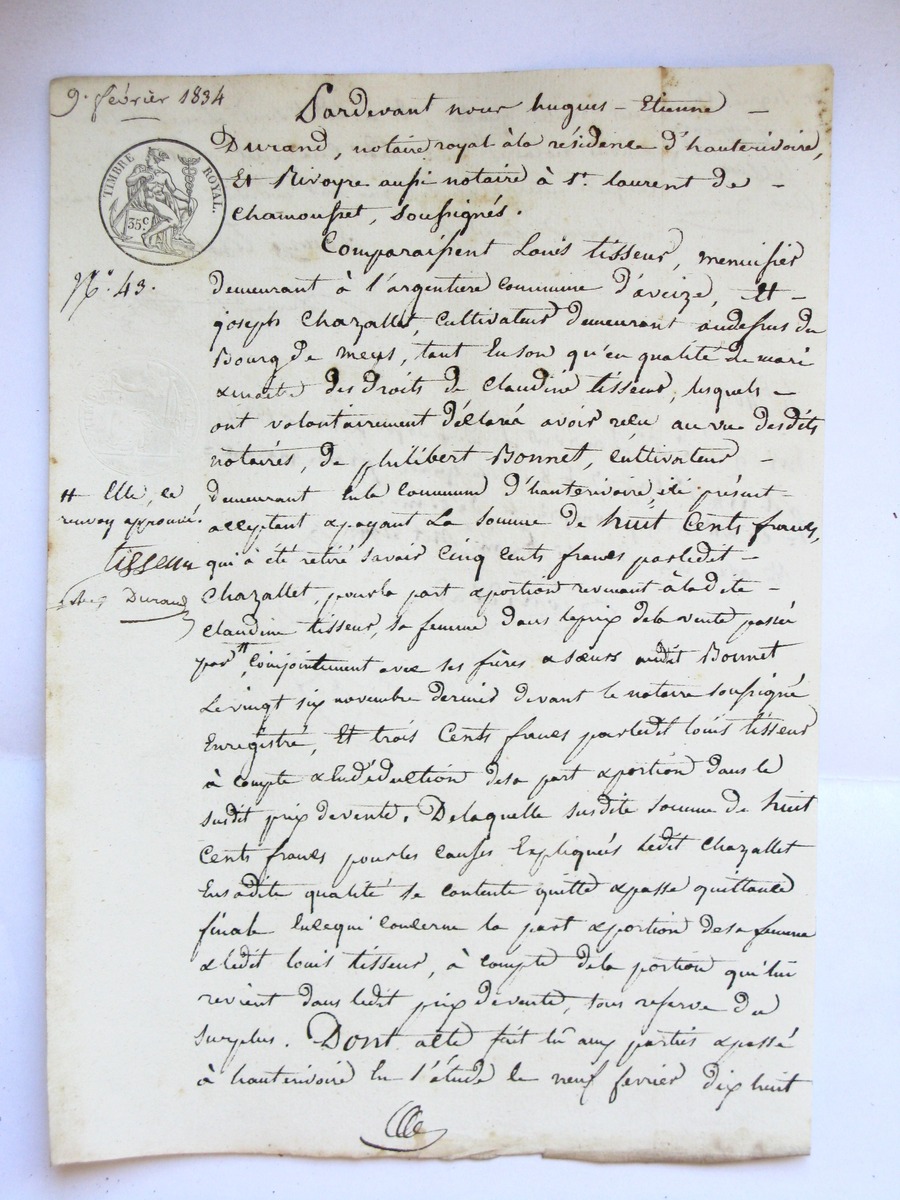 9. février 1834
Pardevant nous hugues - Etienne -
Durand, notaire royal à la résidence d'hauterivoire,
Et Rivoyre aussi notaire à St. laurent de -
Chamousset, soussignés.
TIMBRE ROYAL.
35 c.
Comparaissent Louis tisseur, menuisier
N° 43.
demeurant à l'argentiere commune d'aveize, Et -
joseph Chazallet, cultivateur demeurant audessus du
Bourg de meys, tant En son qu'en qualité de mari
& maitre des droits de Claudine tisseur, lesquels -
ont volontairement déclaré avoir reçu au vu desdits
notaires, de philibert Bonnet, cultivateur -
demeurant En la Commune d'hauterivoire, ici présent -
acceptant & payant La Somme de huit Cents francs,
qui à été retiré savoir Cinq cents francs par ledit -
Chazallet, pour la part & portion revenant à ladite -
Claudine tisseur, sa femme dans le prix de la vente passée
par #, Conjointement avec ses frères & sœurs audit Bonnet
Le vingt six novembre dernier devant le notaire soussigné
Enregistré, Et trois Cents francs par ledit louis tisseur
à compte & En déduction de sa part & portion dans le
susdit prix de vente. De laquelle susdite somme de huit
Cents francs pour les causes Expliquées ledit Chazallet
En sadite qualité se contente quitte & passe quittance
finale En ce qui concerne la part & portion de sa femme
& ledit louis tisseur, à compte de la portion qui lui
revient dans ledit prix de vente, sous reserve du
surplus. Dont acte fait lû aux parties & passé
à hauterivoire En l'étude le neuf fevrier dix huit
# Elle, ce
renvoy approuvé.
tisseur
Durand